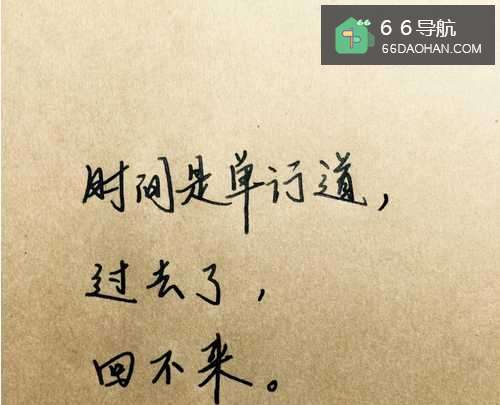 66导航
66DAOHAN.COM
时间是单行道，
过去了，
回不来。